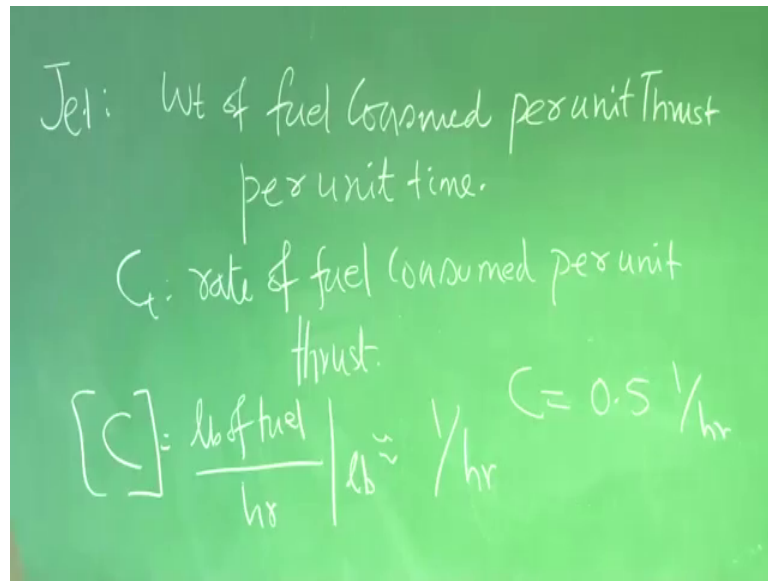 Jet: Wt of fuel Consumed per unit Thrust
per unit time.
Ct: rate of fuel Consumed per unit
thrust.
[C]: lb of fuel / hr | lb ≈ 1/hr C = 0.5 1/hr